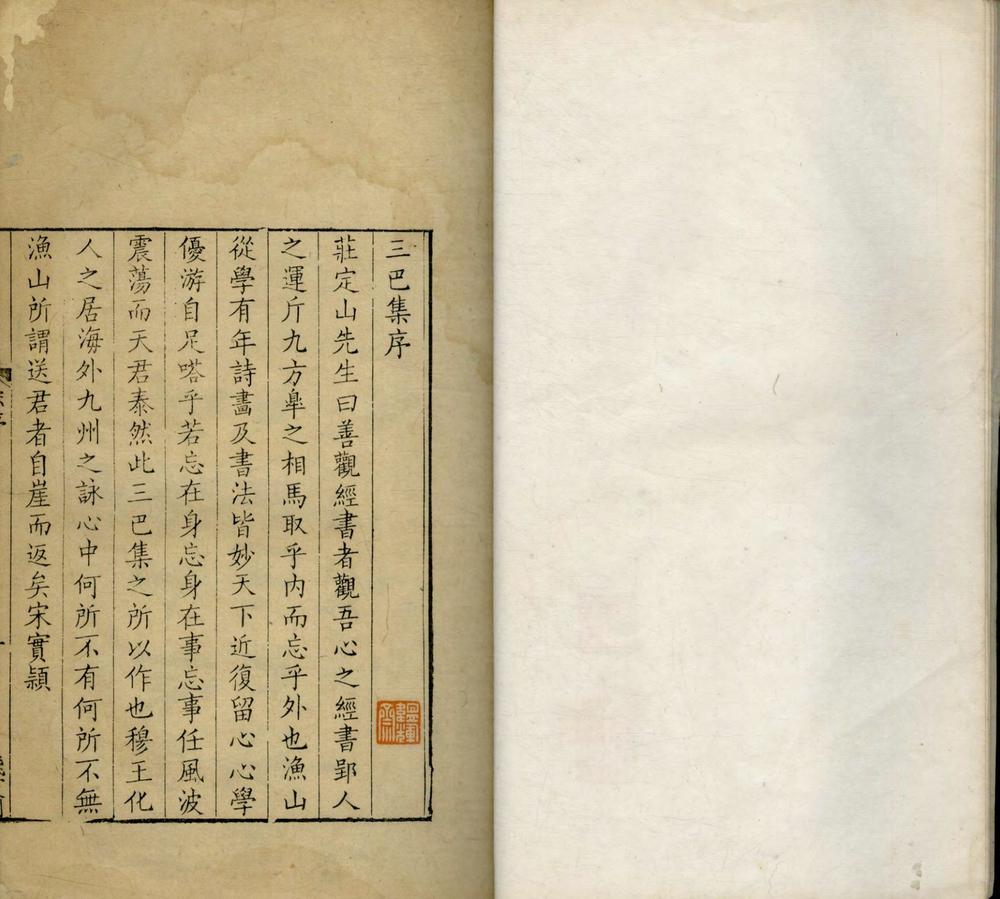 三巴集序
莊定山先生曰善觀經書者觀吾心之經書郢人
之運斤九方臯之相馬取乎内而忘乎外也漁山
從學有年詩畵及書法皆妙天下近復留心心學
優游自足嗒乎若忘在身忘身在事忘事任風波
震蕩而天君泰然此三巴集之所以作也穆王化
人之居海外九州之詠心中何所不有何所不無
漁山所謂送君者自崖而返矣宋實頴